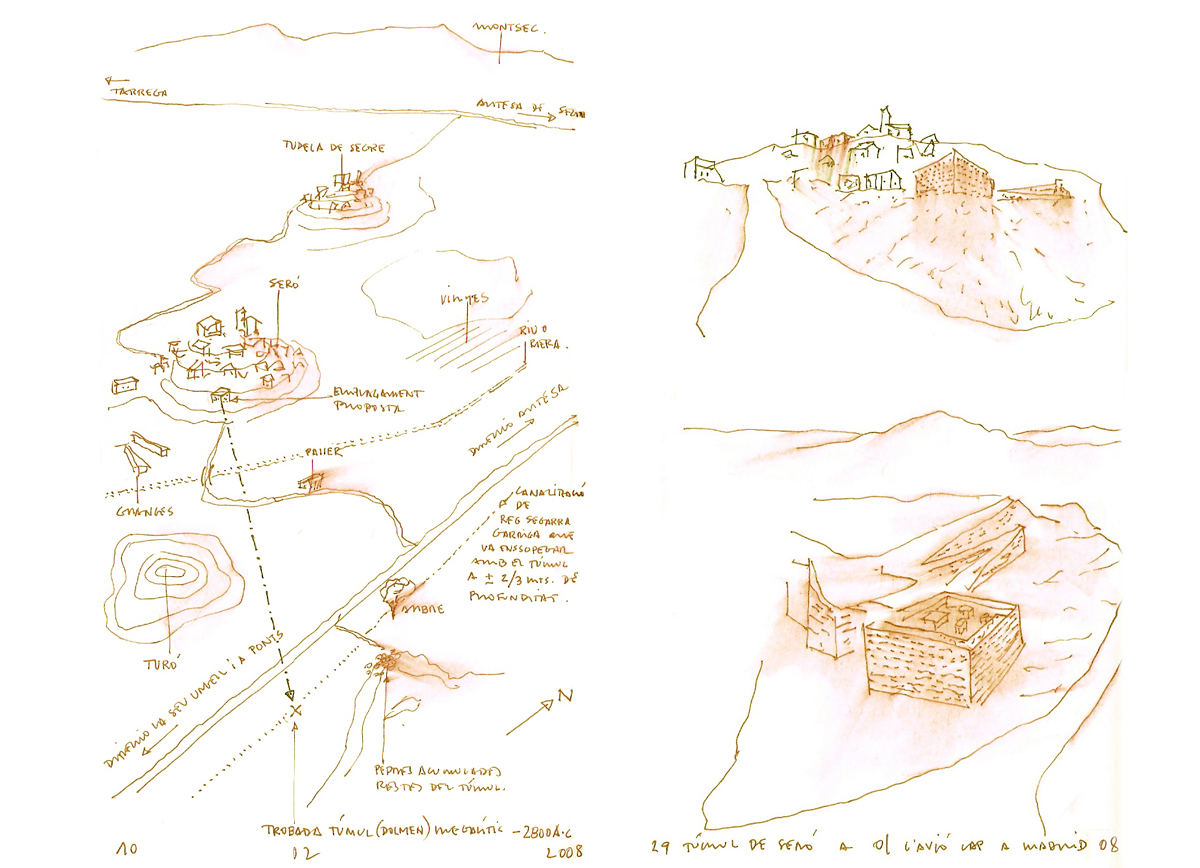 MONTSEC.
TARREGA
ARTESA DE SEGRE
TUDELA DE SEGRE
SERÓ
VINYES
RIU O
RIERA.
EMPLAÇAMENT
PROPOSTA
DIRECCIÓ ARTESA
PALLER
GRANGES
CANALITZACIÓ
DE
REG SEGARRA
GARRIGA QUE
VA ENSSOPEGAR
AMB EL TÚMUL
A ± 2/3 MTS. DE
PROFUNDITAT.
ARBRE
TURÓ
DIRECCIÓ LA SEU URGELL I A PONTS
N
PEDRES ACUMULADES
RESTES DEL TÚMUL.
TROBADA TÚMUL (DOLMEN) MEGALÍTIC - 2800 A.C
10 02 2008
29 TÚMUL DE SERÓ A L'AVIÓ CAP A MADRID 08